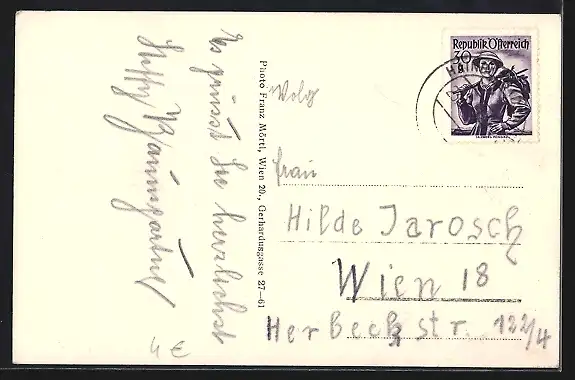 Es grüsst Sie herzlichst
Steffy Baumgartner
4 €
Photo Franz Mörtl, Wien 20., Gerhardusgasse 27—61
Wolg
Republik Österreich
30
Frau
Hilde Jarosch
Wien 18
Herbeckstr. 122/4